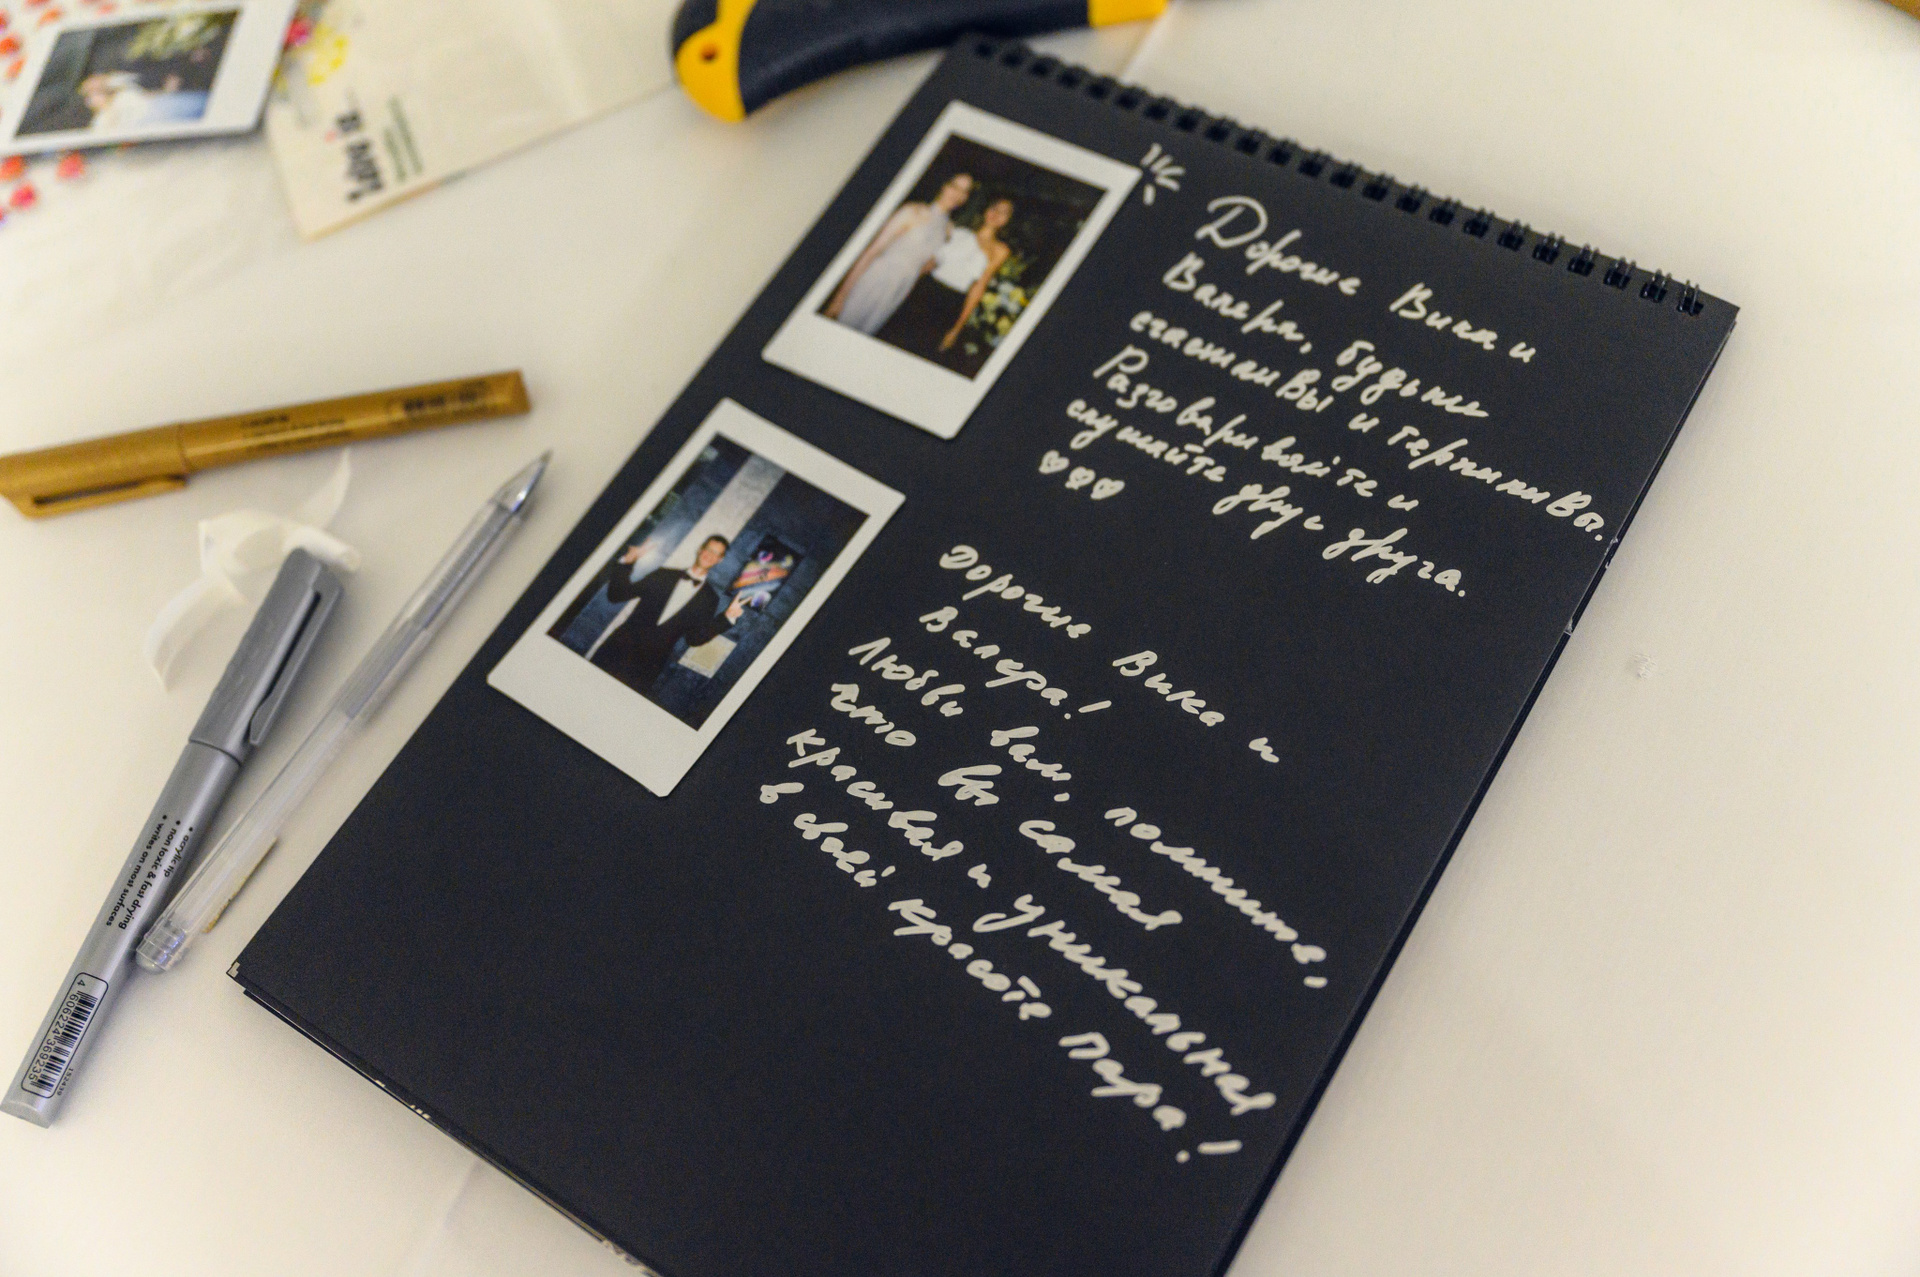 Дорогие Вика и
Валера, будьте
счастливы и терпиливы.
Разговаривайте и
слушайте друг друга.
Дорогие Вика и
Валера!
Любви вам, помните,
что вы самая
красивая и уникальная
в своей красоте пара!
• acrylic tip
• non toxic & fast drying
• writes on most surfaces
4 606224 369235
152439